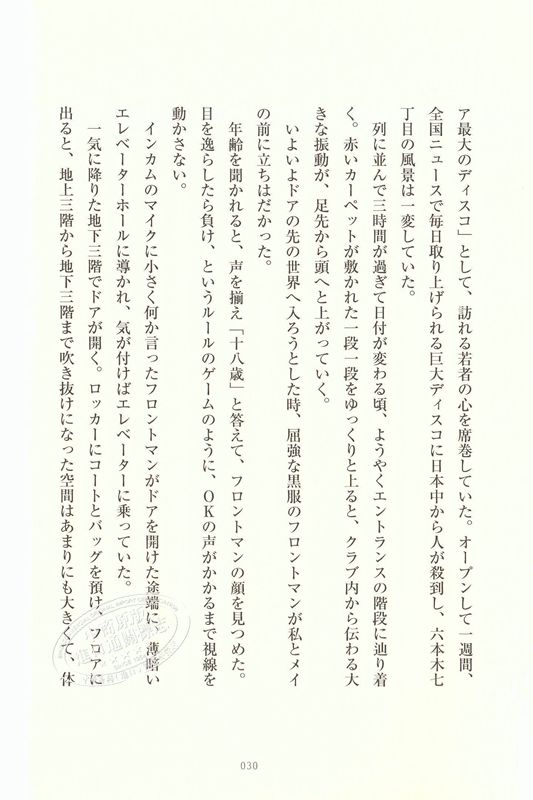 ア最大のディスコ」として、訪れる若者の心を席巻していた。オープンして一週間、
全国ニュースで毎日取り上げられる巨大ディスコに日本中から人が殺到し、六本木七
丁目の風景は一変していた。
列に並んで三時間が過ぎて日付が変わる頃、ようやくエントランスの階段に辿り着
く。赤いカーペットが敷かれた一段一段をゆっくりと上ると、クラブ内から伝わる大
きな振動が、足先から頭へと上がっていく。
いよいよドアの先の世界へ入ろうとした時、屈強な黒服のフロントマンが私とメイ
の前に立ちはだかった。
年齢を聞かれると、声を揃え「十八歳」と答えて、フロントマンの顔を見つめた。
目を逸らしたら負け、というルールのゲームのように、OKの声がかかるまで視線を
動かさない。
インカムのマイクに小さく何か言ったフロントマンがドアを開けた途端に、薄暗い
エレベーターホールに導かれ、気が付けばエレベーターに乗っていた。
一気に降りた地下三階でドアが開く。ロッカーにコートとバッグを預け、フロアに
出ると、地上三階から地下三階まで吹き抜けになった空間はあまりにも大きくて、体
030